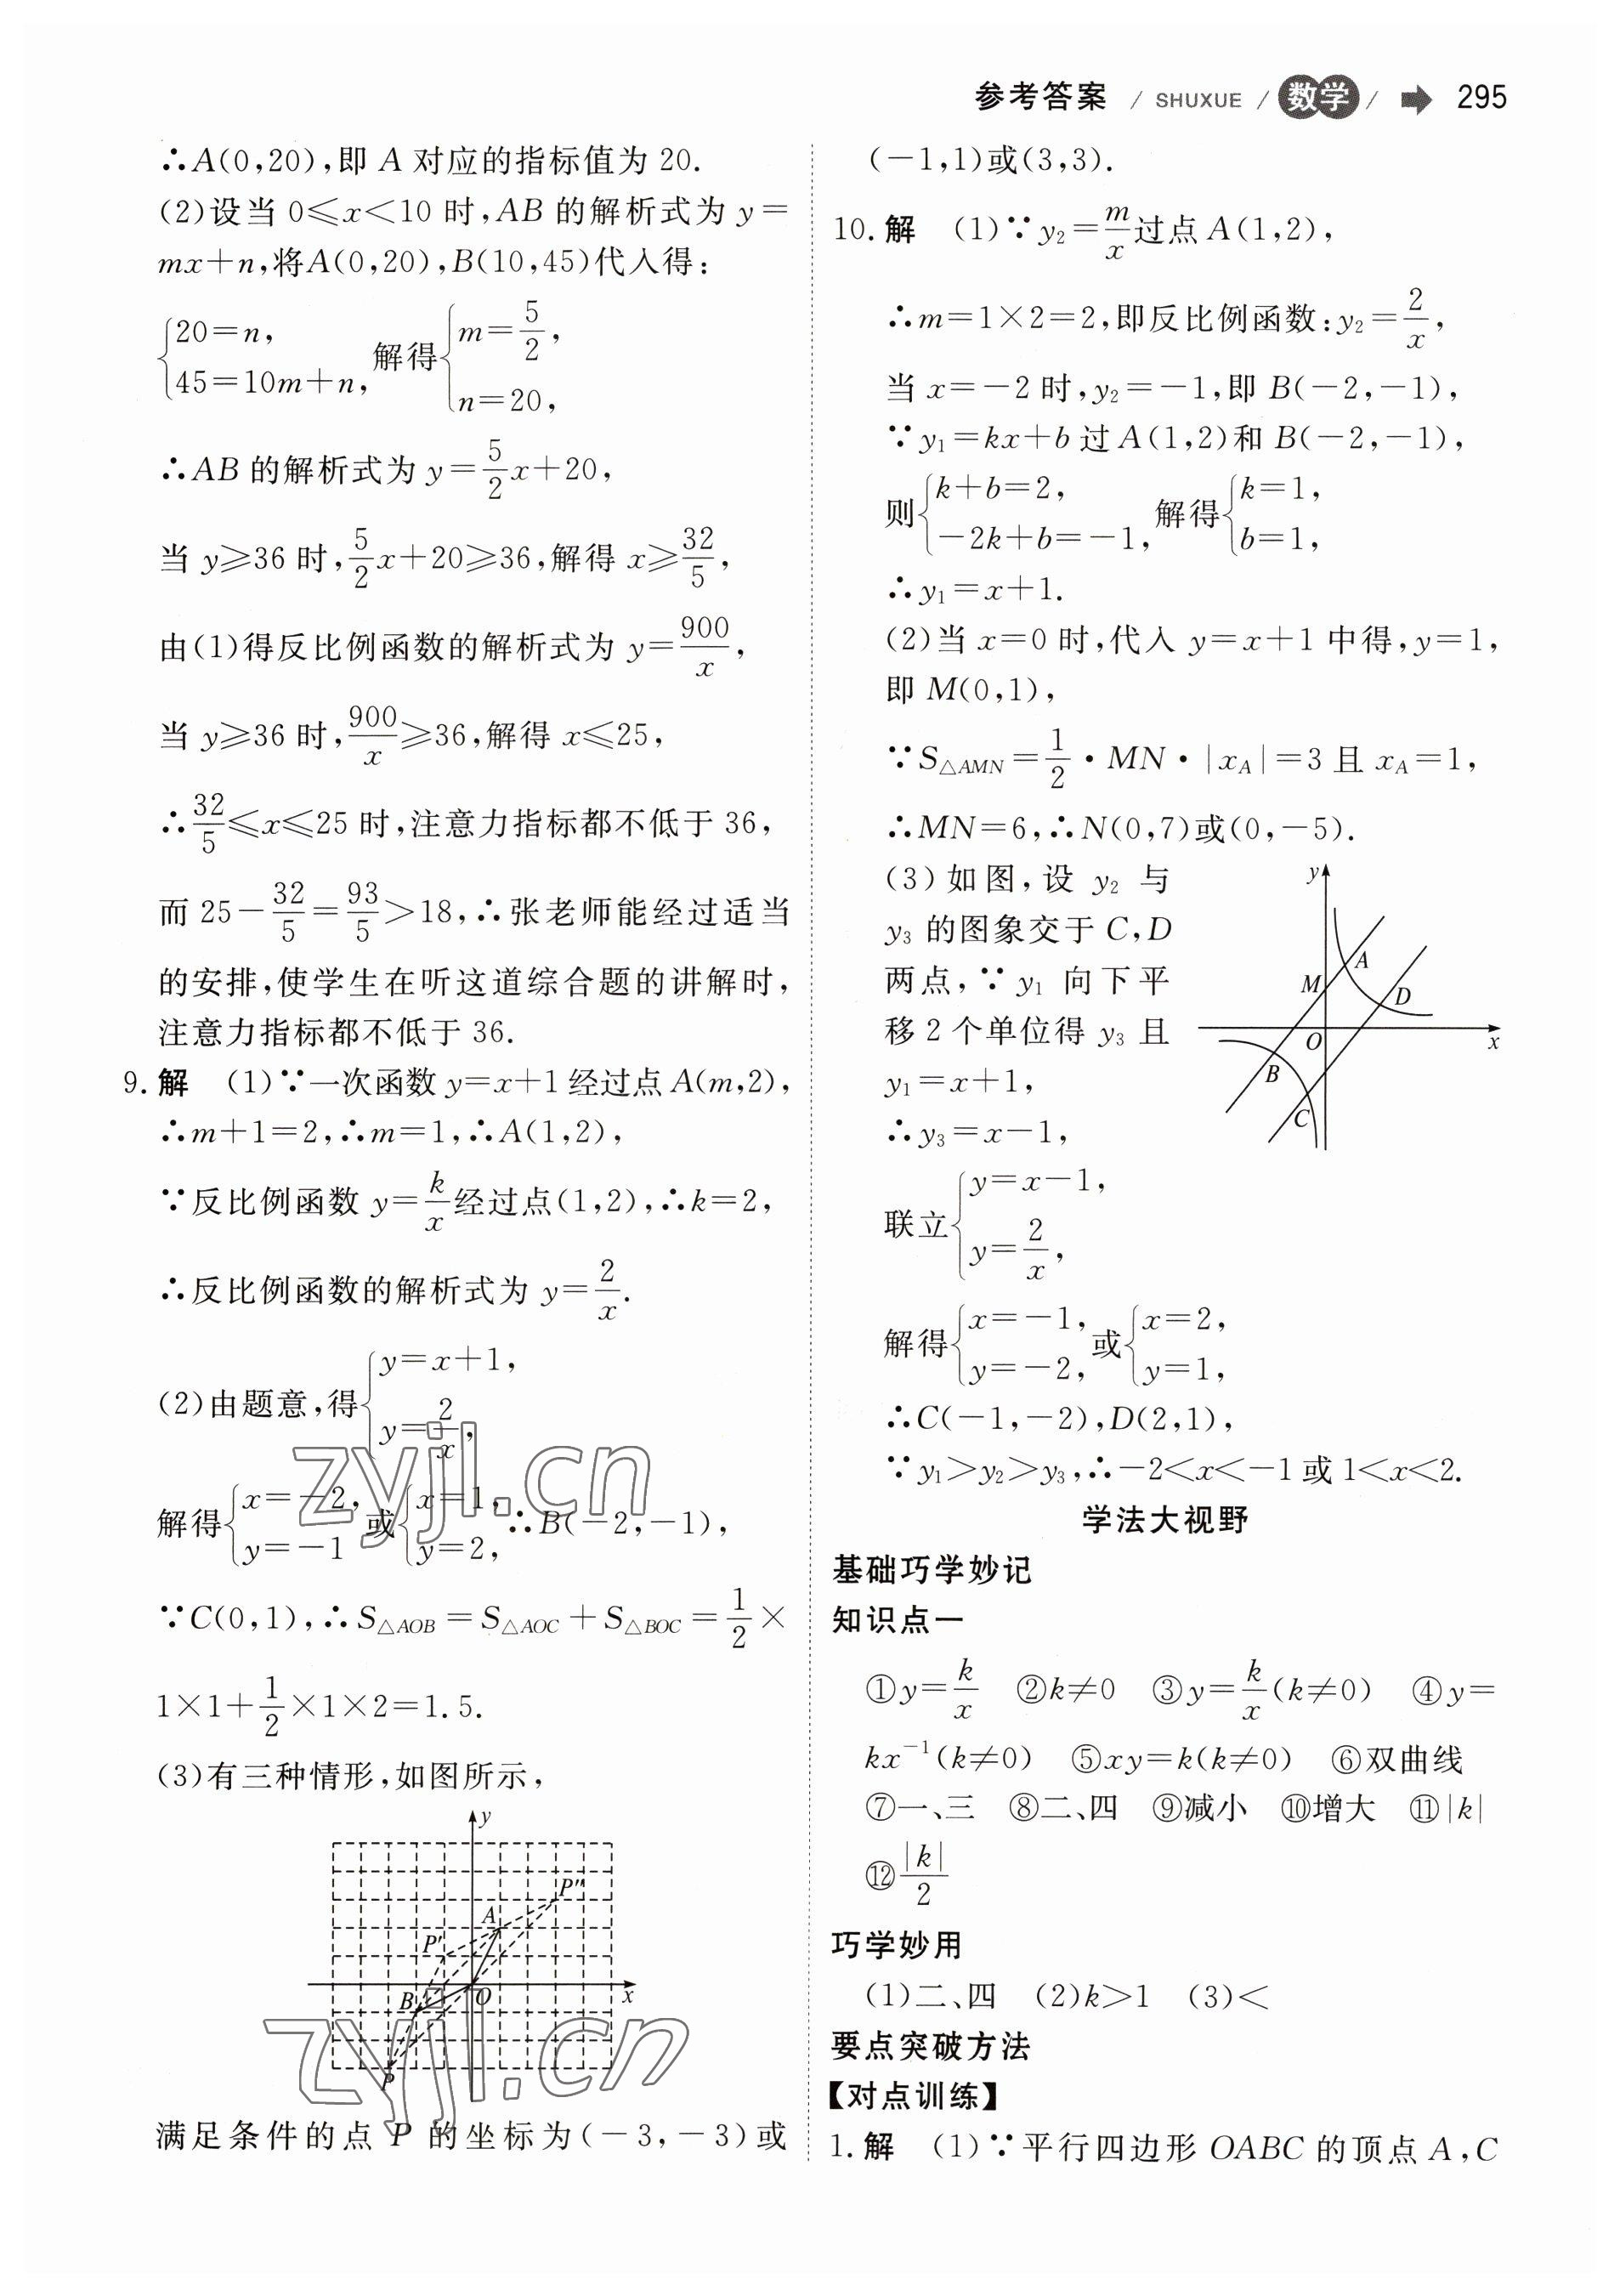 参考答案 / SHUXUE / 数学 / 295
∴A(0,20),即 A 对应的指标值为 20.
(2)设当 0≤x<10 时,AB 的解析式为 y=
mx+n,将A(0,20),B(10,45)代入得:
{20=n, 45=10m+n, 解得{m=5/2, n=20,
∴AB 的解析式为 y=5/2x+20,
当 y≥36 时,5/2x+20≥36,解得 x≥32/5,
由(1)得反比例函数的解析式为 y=900/x,
当 y≥36 时,900/x≥36,解得 x≤25,
∴32/5≤x≤25 时,注意力指标都不低于 36,
而 25-32/5=93/5>18,∴张老师能经过适当
的安排,使学生在听这道综合题的讲解时,
注意力指标都不低于 36.
9. 解 (1)∵一次函数 y=x+1 经过点 A(m,2),
∴m+1=2,∴m=1,∴A(1,2),
∵反比例函数 y=k/x经过点(1,2),∴k=2,
∴反比例函数的解析式为 y=2/x.
(2)由题意,得{y=x+1, y=2/x,
解得{x=-2, y=-1 或{x=1, y=2, ∴B(-2,-1),
∵C(0,1),∴S△AOB=S△AOC+S△BOC=1/2×
1×1+1/2×1×2=1.5.
(3)有三种情形,如图所示,
y
P″
A
P′
B
O
x
P
满足条件的点 P 的坐标为(-3,-3)或
(-1,1)或(3,3).
10. 解 (1)∵y₂=m/x过点 A(1,2),
∴m=1×2=2,即反比例函数:y₂=2/x,
当 x=-2 时,y₂=-1,即 B(-2,-1),
∵y₁=kx+b 过 A(1,2)和 B(-2,-1),
则{k+b=2, -2k+b=-1, 解得{k=1, b=1,
∴y₁=x+1.
(2)当 x=0 时,代入 y=x+1 中得,y=1,
即 M(0,1),
∵S△AMN=1/2·MN·|xA|=3 且 xA=1,
∴MN=6,∴N(0,7)或(0,-5).
(3)如图,设 y₂ 与
y₃ 的图象交于 C,D
两点,∵y₁ 向下平
移 2 个单位得 y₃ 且
y₁=x+1,
∴y₃=x-1,
y
A
M
D
O
x
B
C
联立{y=x-1, y=2/x,
解得{x=-1, y=-2, 或{x=2, y=1,
∴C(-1,-2),D(2,1),
∵y₁>y₂>y₃,∴-2<x<-1 或 1<x<2.
学法大视野
基础巧学妙记
知识点一
①y=k/x ②k≠0 ③y=k/x(k≠0) ④y=
kx⁻¹(k≠0) ⑤xy=k(k≠0) ⑥双曲线
⑦一、三 ⑧二、四 ⑨减小 ⑩增大 ⑪|k|
⑫|k|/2
巧学妙用
(1)二、四 (2)k>1 (3)<
要点突破方法
【对点训练】
1. 解 (1)∵平行四边形 OABC 的顶点 A,C
zyjl.cn
zyjl.cn